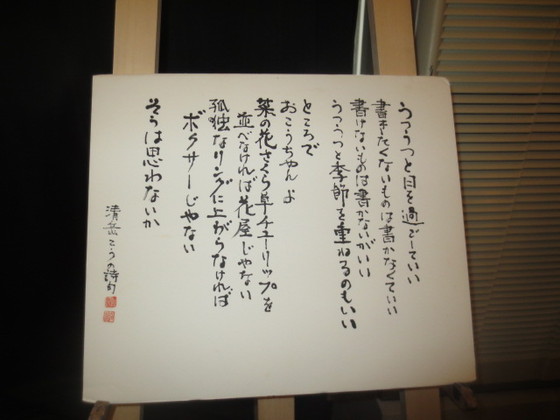 うつうつと日を過ごしていい
書きたくないものは書かなくていい
書けないものは書かないがいい
うつうつと季節を重ねるのもいい
ところで
おこうちゃん よ
菜の花さくら草チューリップを
並べなければ花屋じゃない
孤独なリングに上がらなければ
ボクサーじゃない
そうは思わないか
清岳こうの詩句